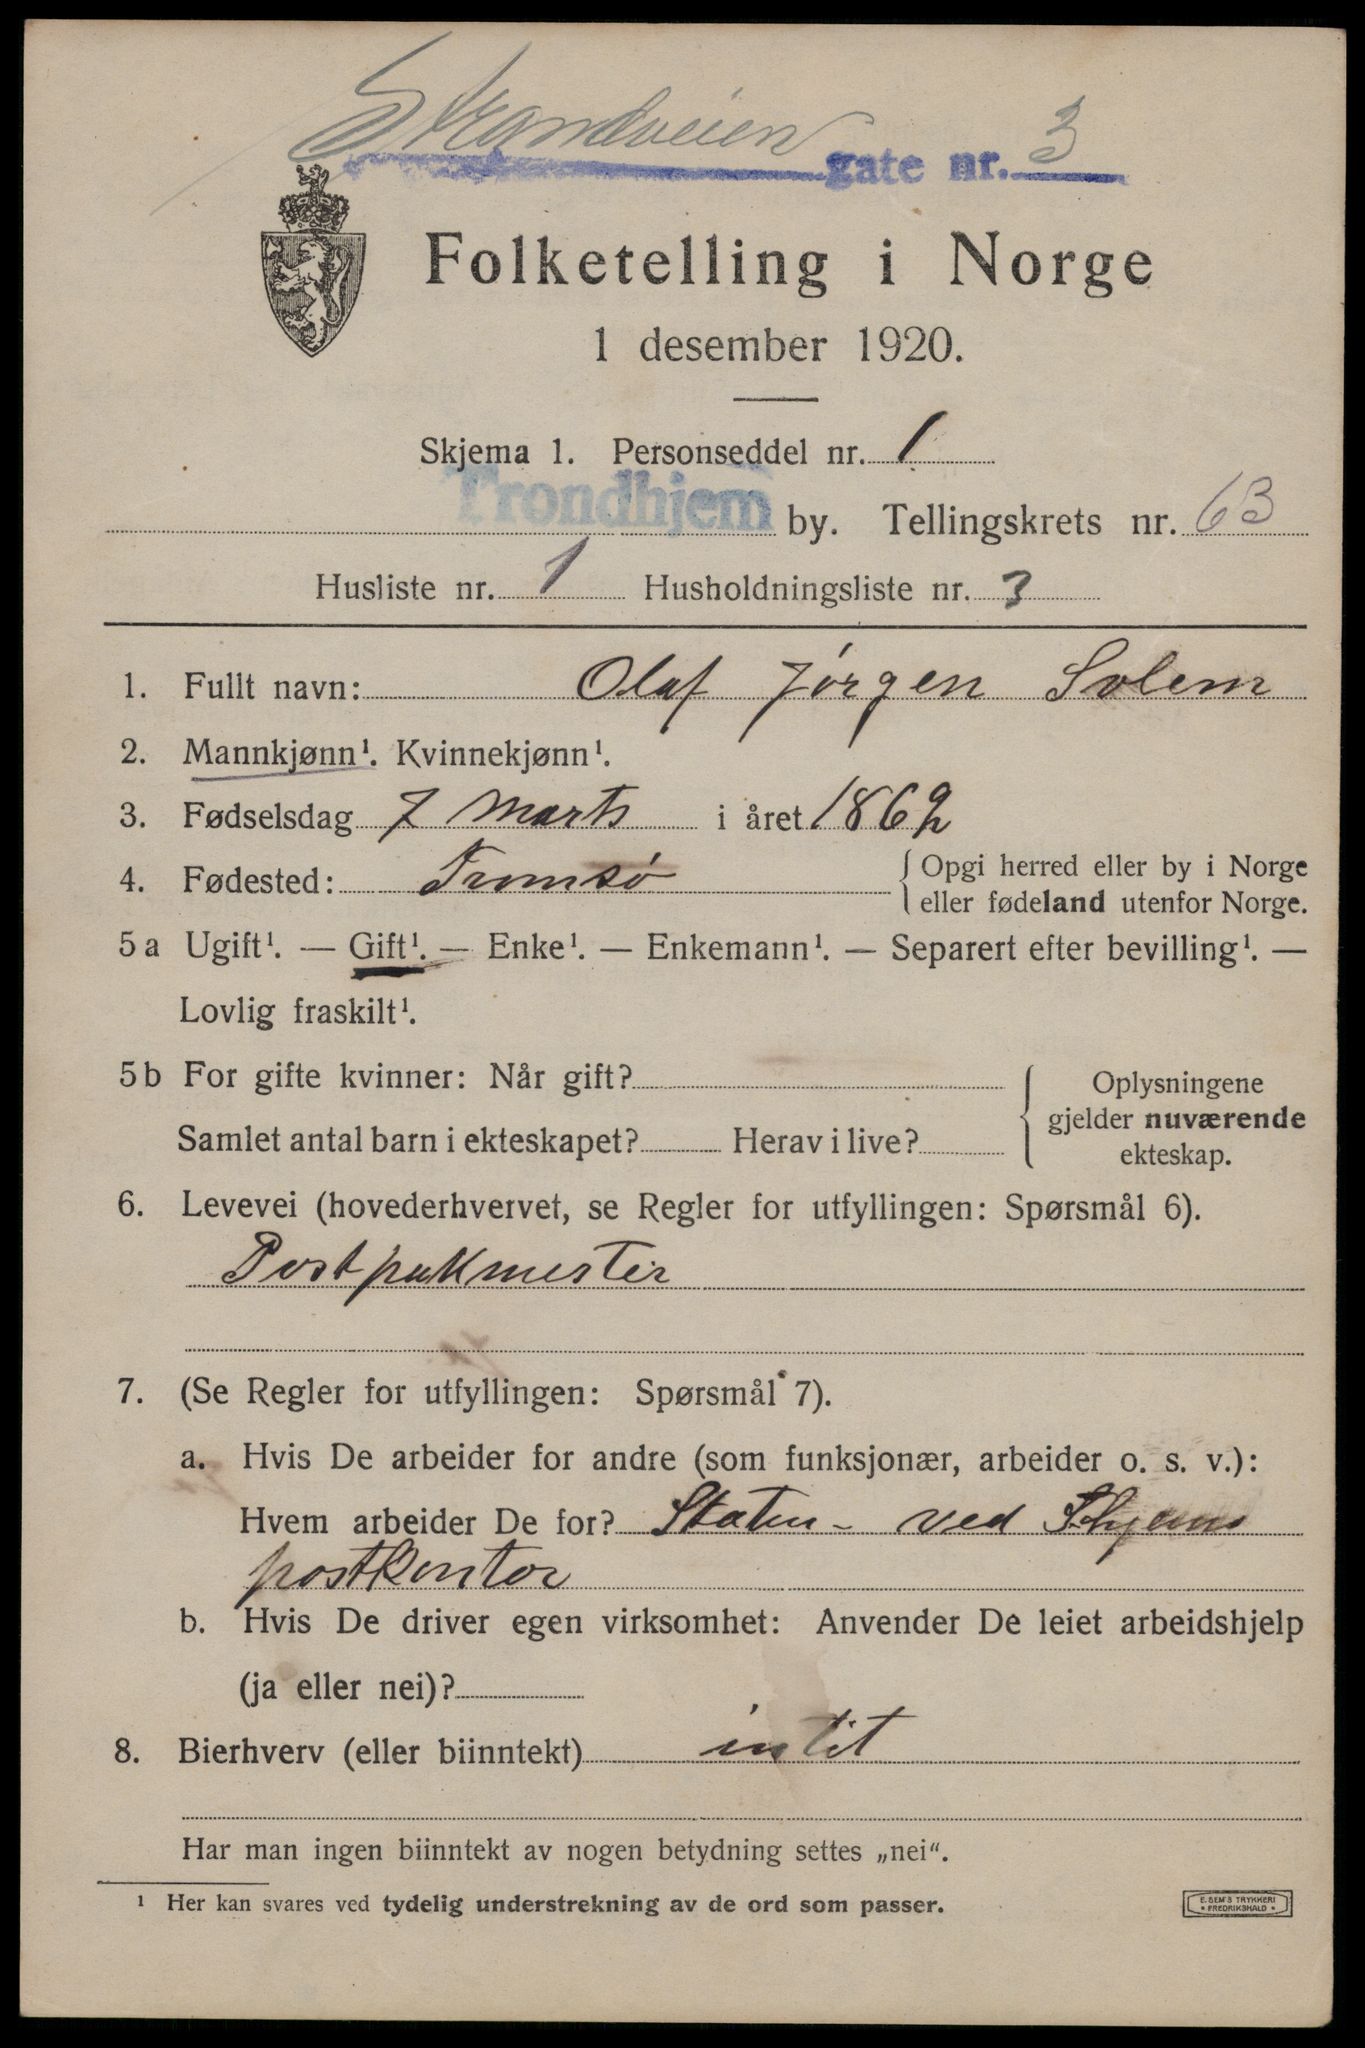 Strandveien gate nr. 3
Folketelling i Norge
1 desember 1920.
Skjema 1. Personseddel nr. 1
Trondhjem by. Tellingskrets nr. 63
Husliste nr. 1 Husholdningsliste nr. 3
1. Fullt navn: Olaf Jørgen Solem
2. Mannkjønn¹. Kvinnekjønn¹.
3. Fødselsdag 7 Marts i året 1862
4. Fødested: Tromsø { Opgi herred eller by i Norge
eller fødeland utenfor Norge.
5a Ugift¹. — Gift¹. — Enke¹. — Enkemann¹. — Separert efter bevilling¹. —
Lovlig fraskilt¹.
5b For gifte kvinner: Når gift?
Samlet antal barn i ekteskapet? Herav i live?
Oplysningene
gjelder nuværende
ekteskap.
6. Levevei (hovederhvervet, se Regler for utfyllingen: Spørsmål 6).
Postpakmester
7. (Se Regler for utfyllingen: Spørsmål 7).
a. Hvis De arbeider for andre (som funksjonær, arbeider o. s. v.):
Hvem arbeider De for? Staten - ved Thjems
postkontor
b. Hvis De driver egen virksomhet: Anvender De leiet arbeidshjelp
(ja eller nei)?
8. Bierhverv (eller biinntekt) intet
Har man ingen biinntekt av nogen betydning settes „nei“.
¹ Her kan svares ved tydelig understrekning av de ord som passer.
E. SEM'S TRYKKERI
FREDRIKSHALD